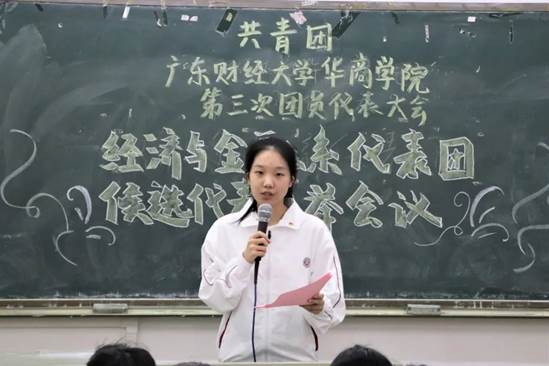 共青团
广东财经大学华商学院
第三次团员代表大会
经济与金 系代表团
候选代 举会议